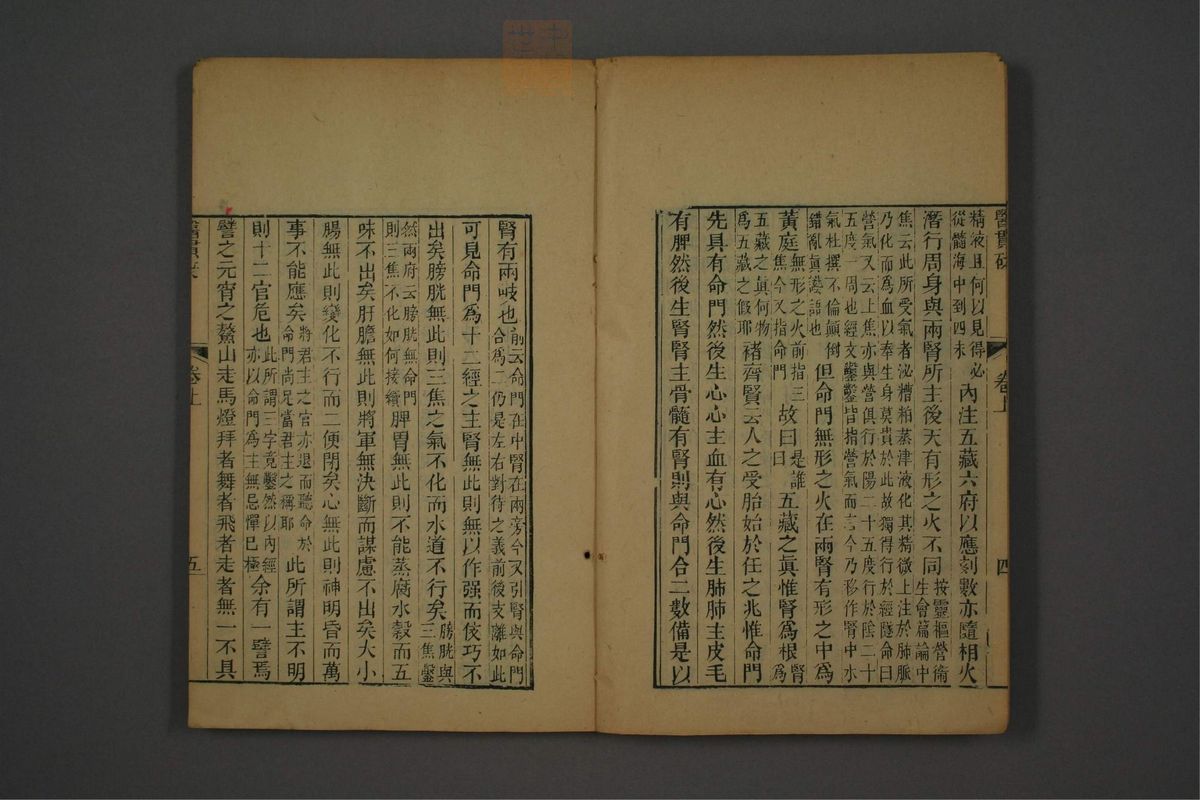 醫貫砭
卷上
四
精液且何以見得必
從髓海中到四末
內注五藏六府以應刻數亦隨相火
潛行周身與兩腎所主後天有形之火不同
按靈樞營衛
生會篇論中
焦云此所受氣者泌糟粕蒸津液化其精微上注於肺脈
乃化而為血以奉生身莫貴於此故獨得行於經隧命曰
營氣又云上焦亦與營俱行於陽二十五度行於陰二十
五度一周也經文鑿鑿皆指營氣而言今乃移作腎中水
氣杜撰不倫顛倒
錯亂眞讝語也
但命門無形之火在兩腎有形之中為
黃庭
無形之火前指三
焦今又指命門
故曰
是誰
曰
五藏之眞惟腎為根
腎
為
五藏之眞何物
為五藏之假耶
褚齊賢云人之受胎始於任之兆惟命門
先具有命門然後生心心主血有心然後生肺肺主皮毛
有肺然後生腎腎主骨髓有腎則與命門合二數備是以
腎有兩岐也
前云命門在中腎在兩旁今又引腎與命門
合為二仍是左右對待之義前後支離如此
可見命門為十二經之主腎無此則無以作强而伎巧不
出矣膀胱無此則三焦之氣不化而水道不行矣
膀胱與
三焦鑿
然兩府云膀胱無命門
則三焦不化如何接續
脾胃無此則不能蒸腐水穀而五
味不出矣肝膽無此則將軍無決斷而謀慮不出矣大小
腸無此則變化不行而二便閉矣心無此則神明昏而萬
事不能應矣
將君主之官亦退而聽命於
命門尚足當君主之稱耶
此所謂主不明
則十二官危也
此所謂三字竟鑿然以內經
亦以命門為主無忌憚已極
余有一譬焉
譬之元宵之鰲山走馬燈拜者舞者飛者走者無一不具
醫貫砭
卷上
五